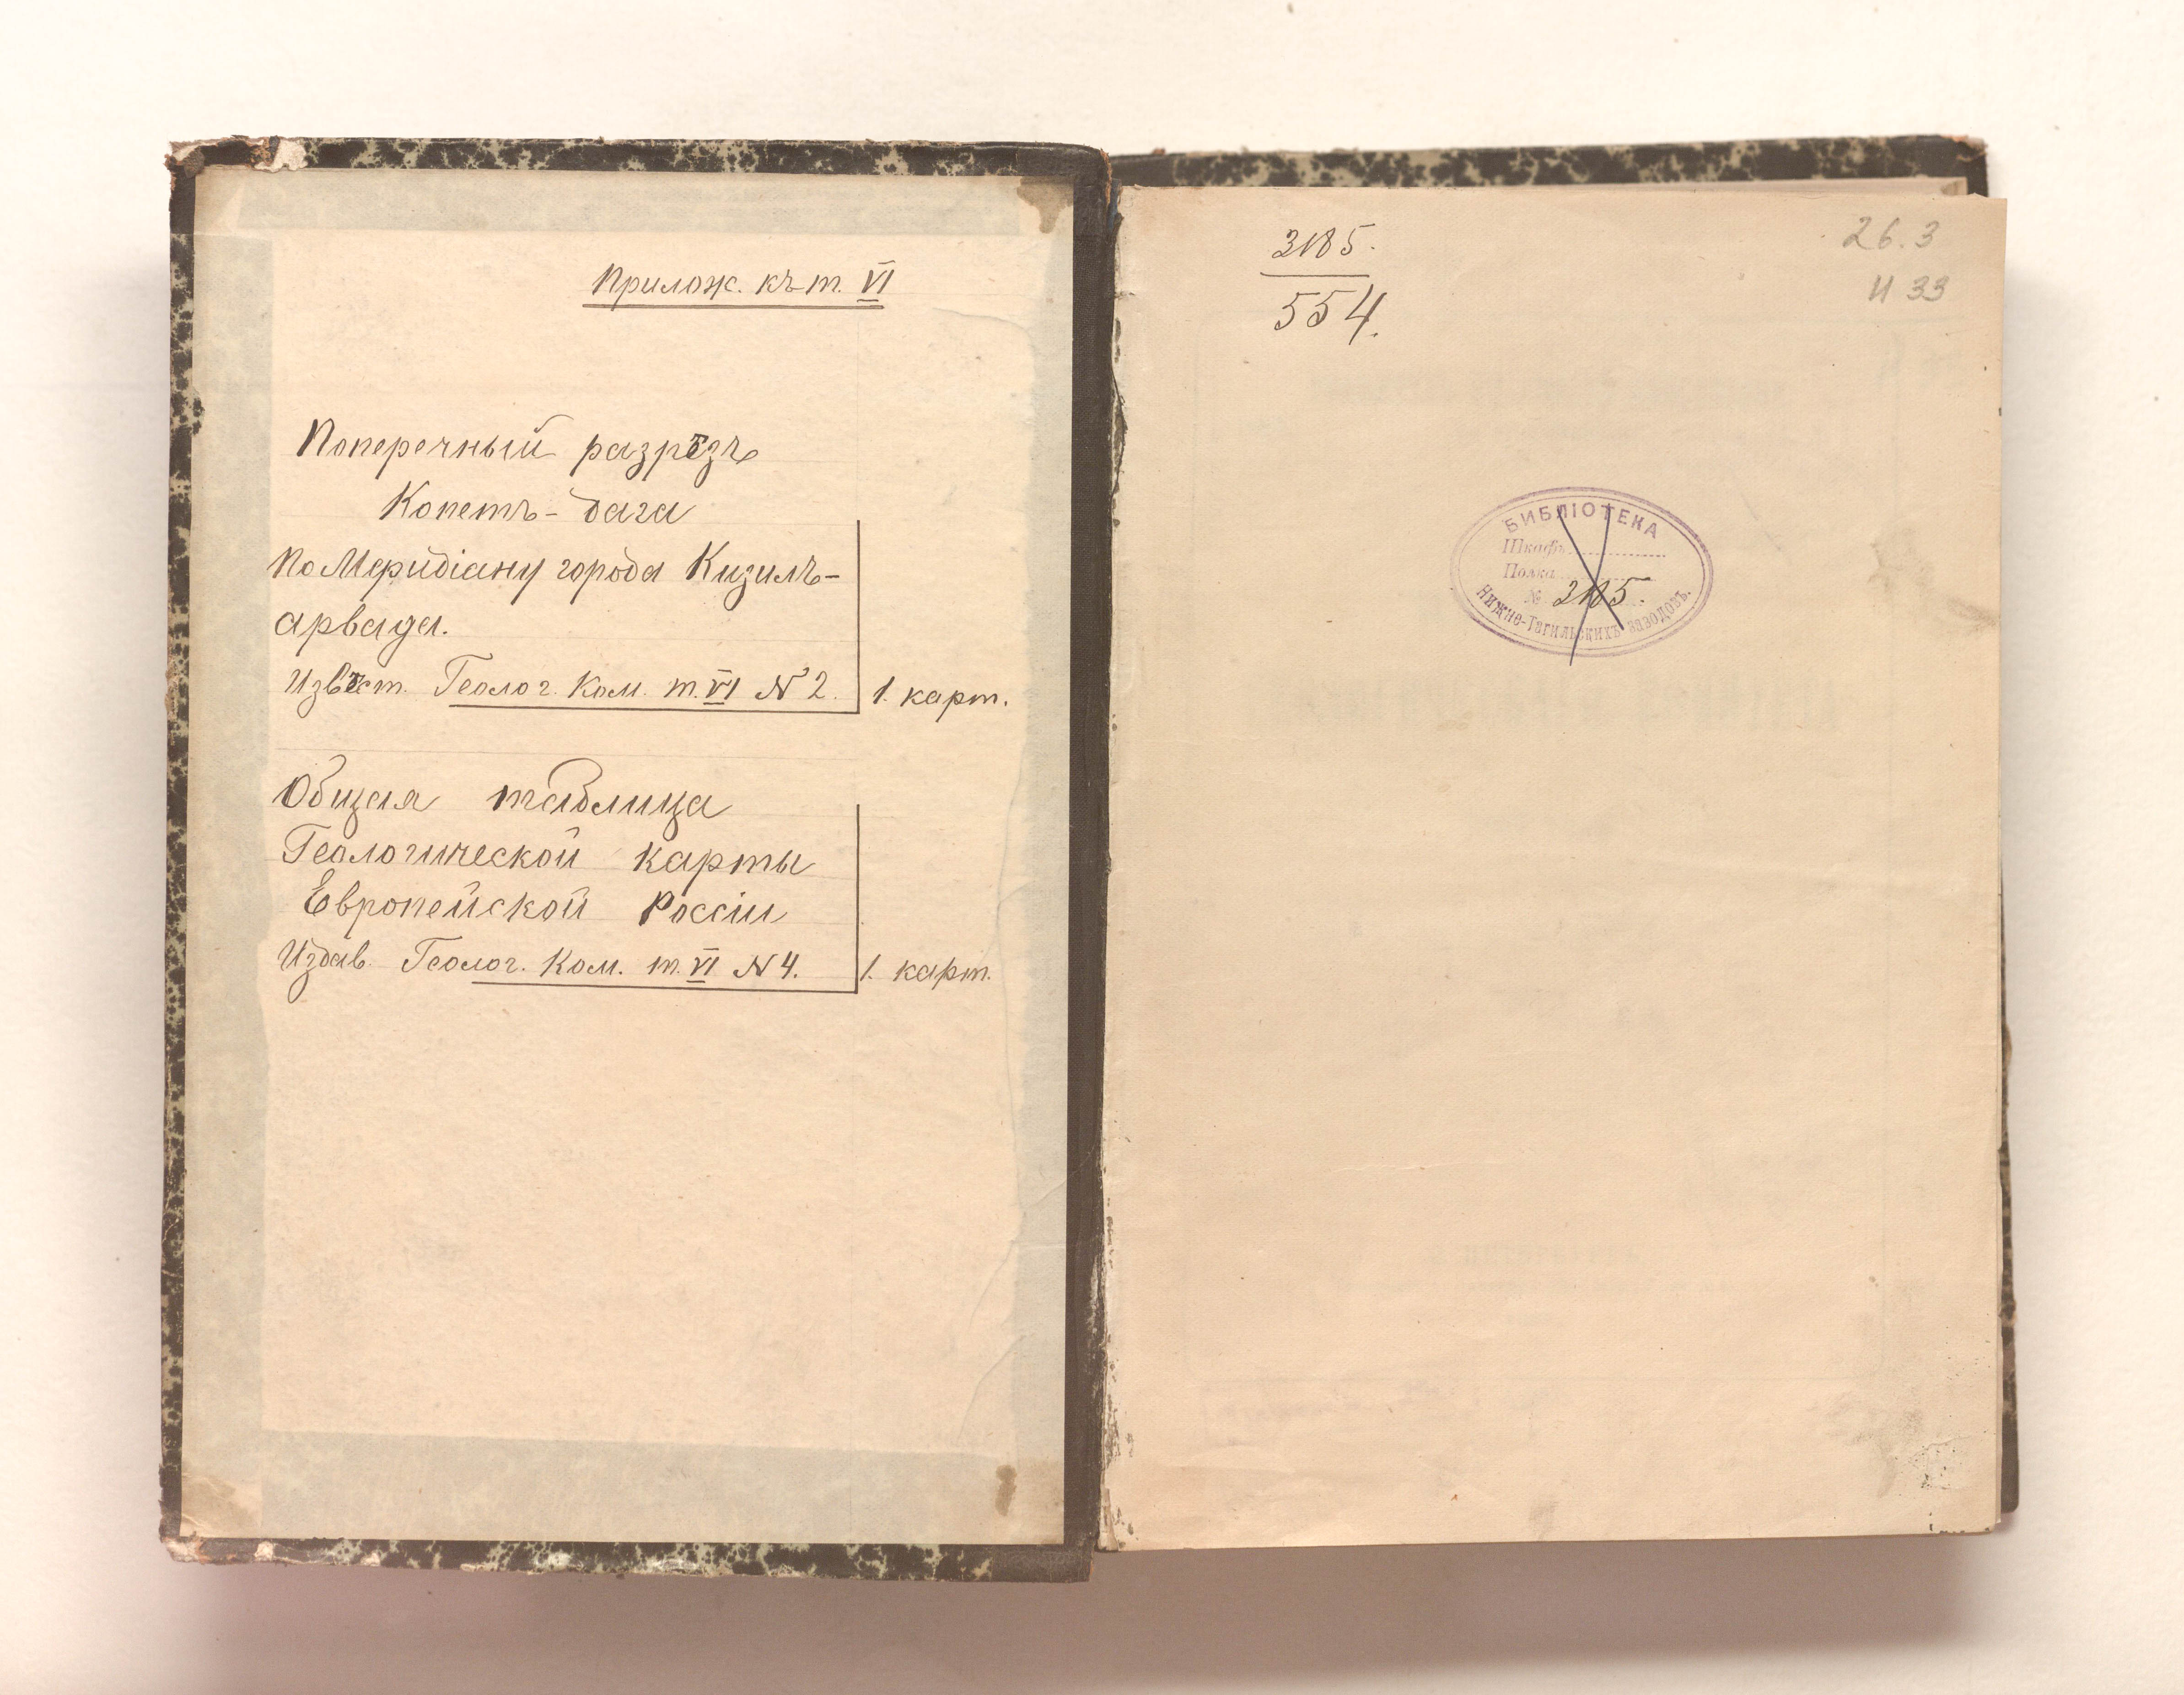 Прилож. къ т. VI
Поперечный разрѣзъ
Копетъ-дага
по Меридіану города Кизилъ-
арвада.
Извѣст. Геолог. Ком. т. VI № 2.
1. карт.
Общая таблица
Геологической карты
Европейской Россіи
Издав. Геолог. Ком. т. VI № 4.
1. карт.
3185.
554.
26.3
И 33
БИБЛІОТЕКА
Шкафъ
Полка
№ 3185.
Нижне-Тагильскихъ заводовъ.